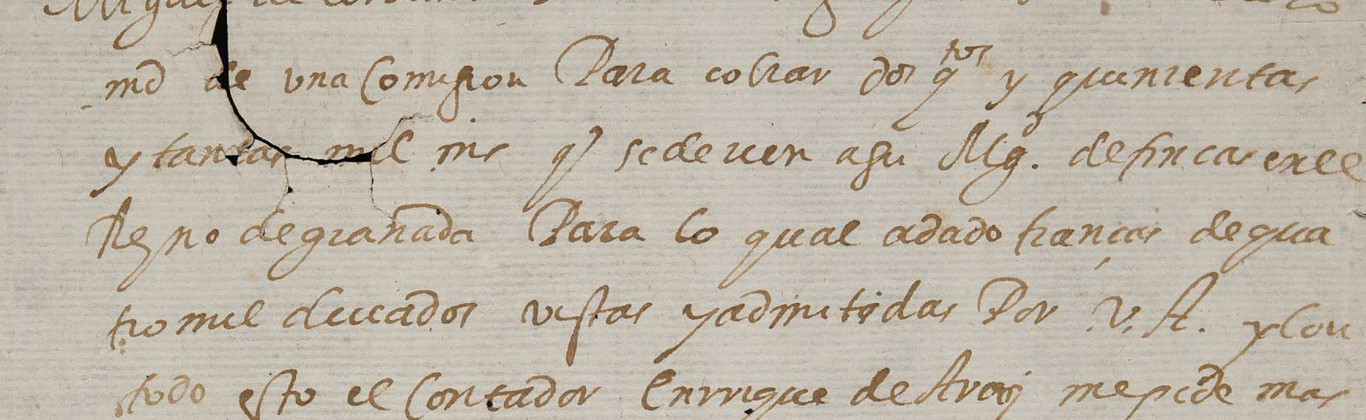 Miguel de
md de una Comision Para cobrar dos qtos y quinientas
y tantas mil ms q se deven a su Mgd. de fincas en el
Reyno de granada Para lo qual a dado fianças de qua
tro mil ducados vistas y admitidas Por V. A. y Con
todo esto el Contador Enrrique de Araoz me pide mas